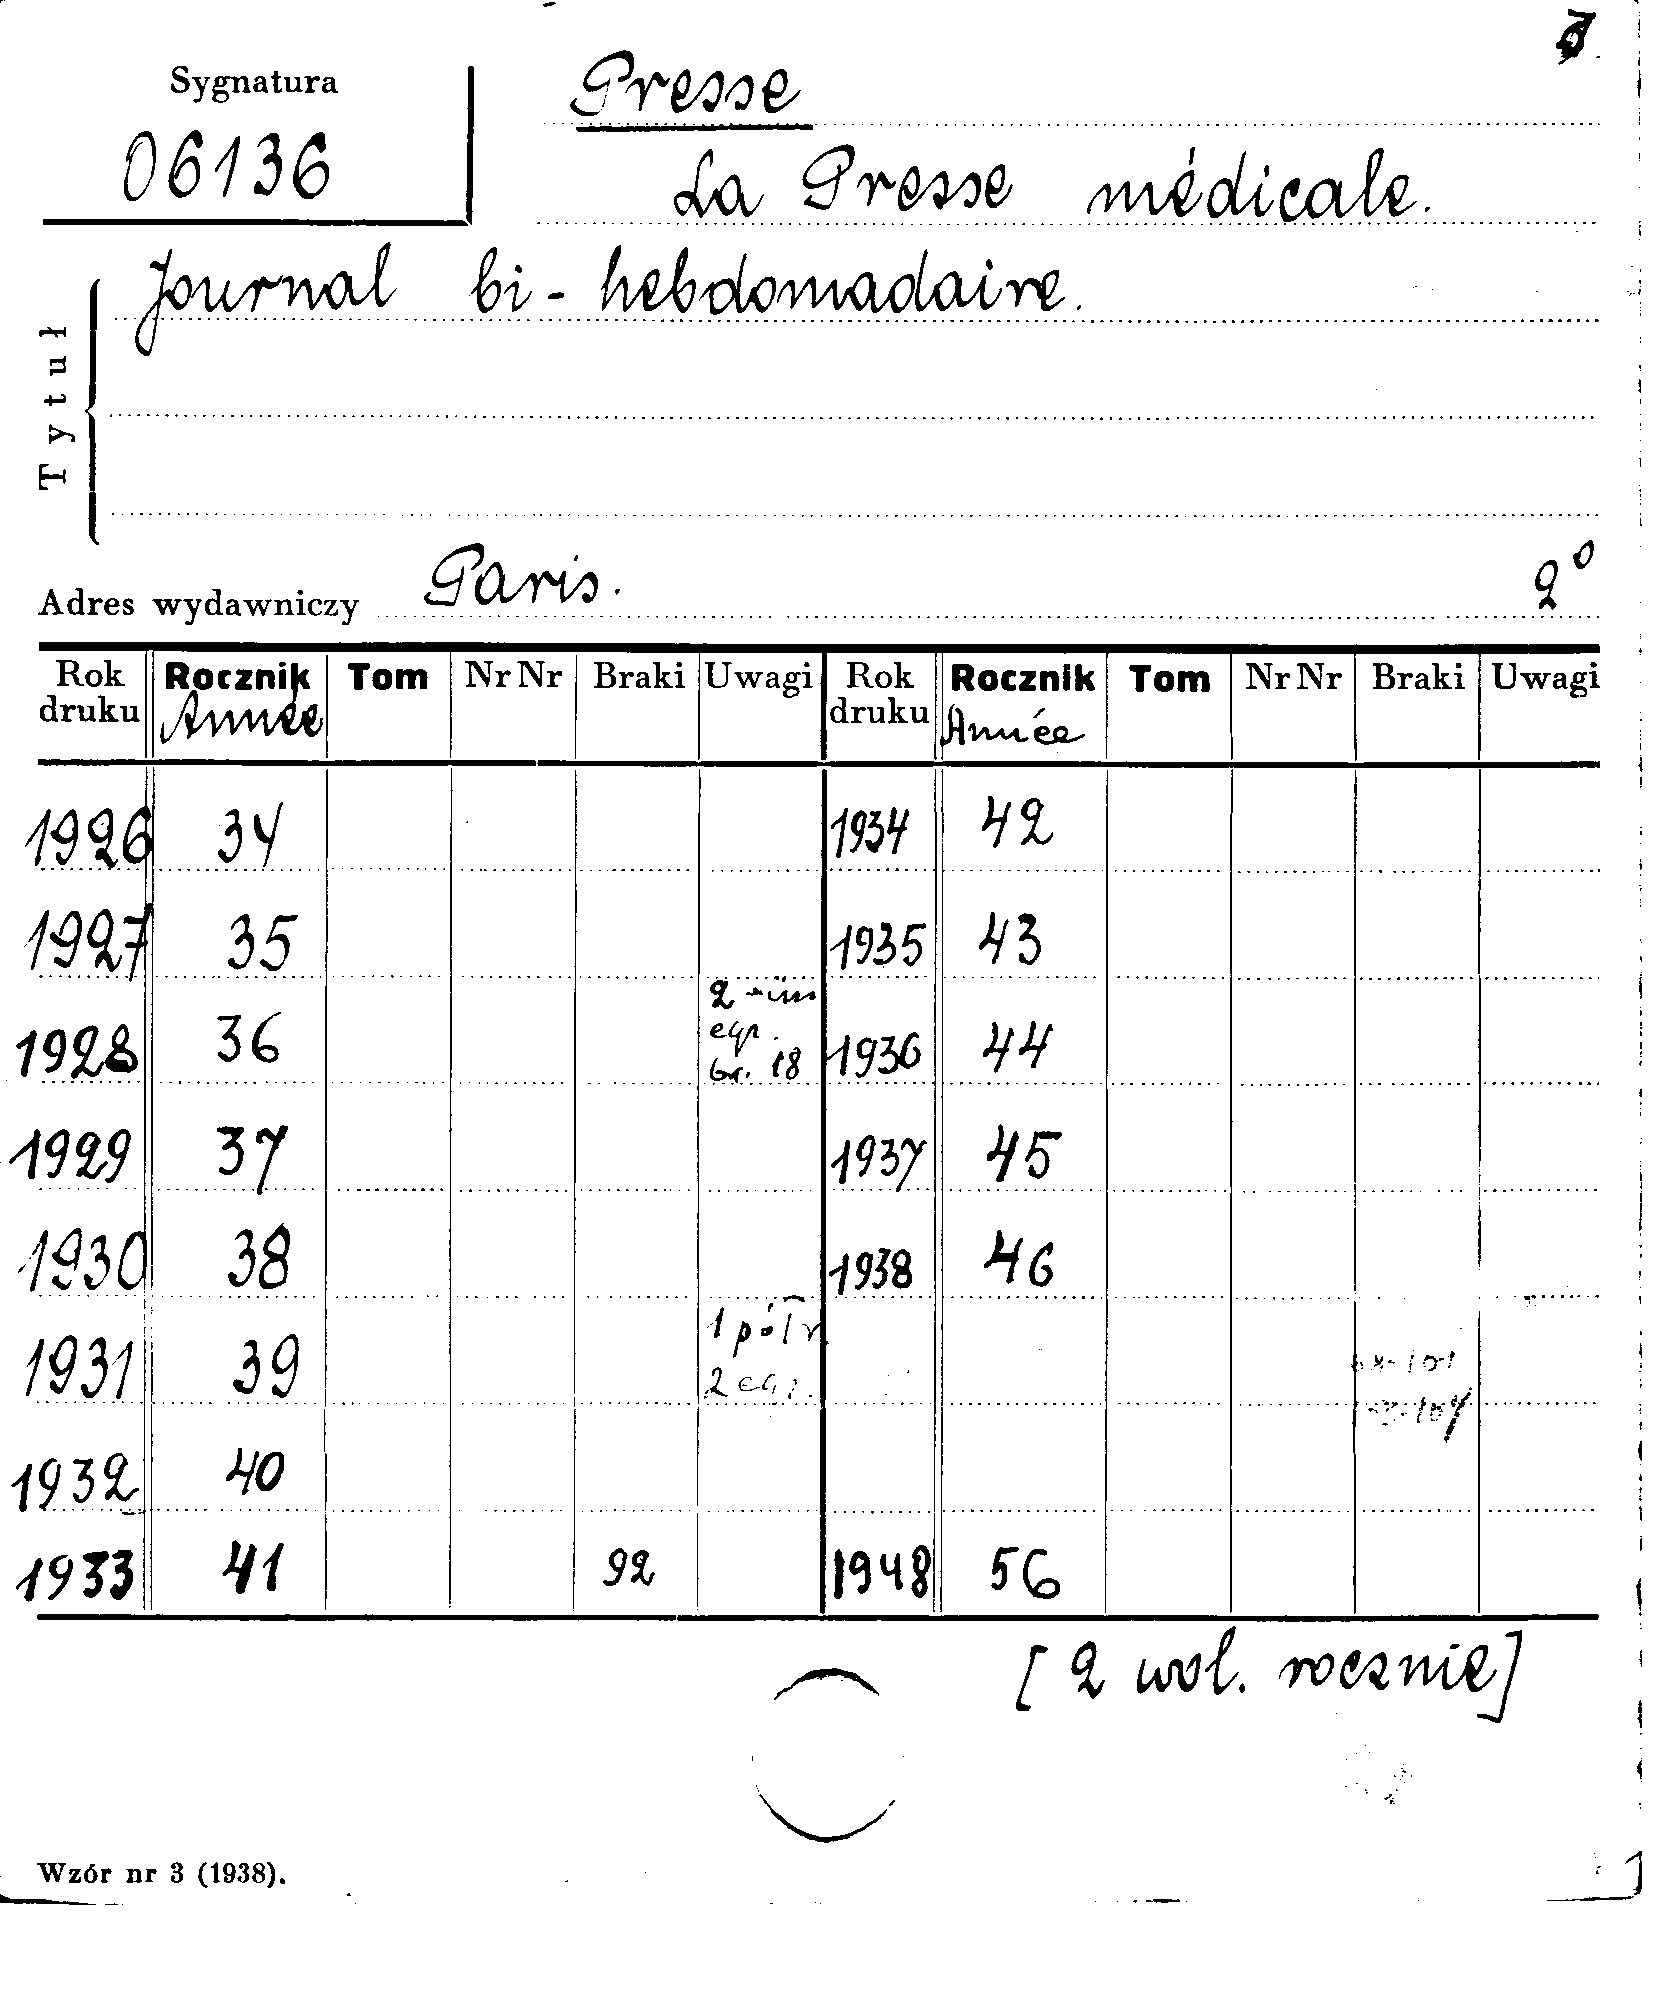 Sygnatura
06136
Presse
La Presse médicale.
Journal bi-hebdomadaire.
Tytuł
Adres wydawniczy Paris. 2º
Rok druku Rocznik Année Tom Nr Nr Braki Uwagi Rok druku Rocznik Année Tom Nr Nr Braki Uwagi
1926 34 1934 42
1927 35 1935 43
1928 36 2 egz. 18 1936 44
1929 37 1937 45
1930 38 1938 46
1931 39 1 półr. 2 egz.
1932 40
1933 41 92 1948 56
[2 wol. rocznie]
Wzór nr 3 (1938).